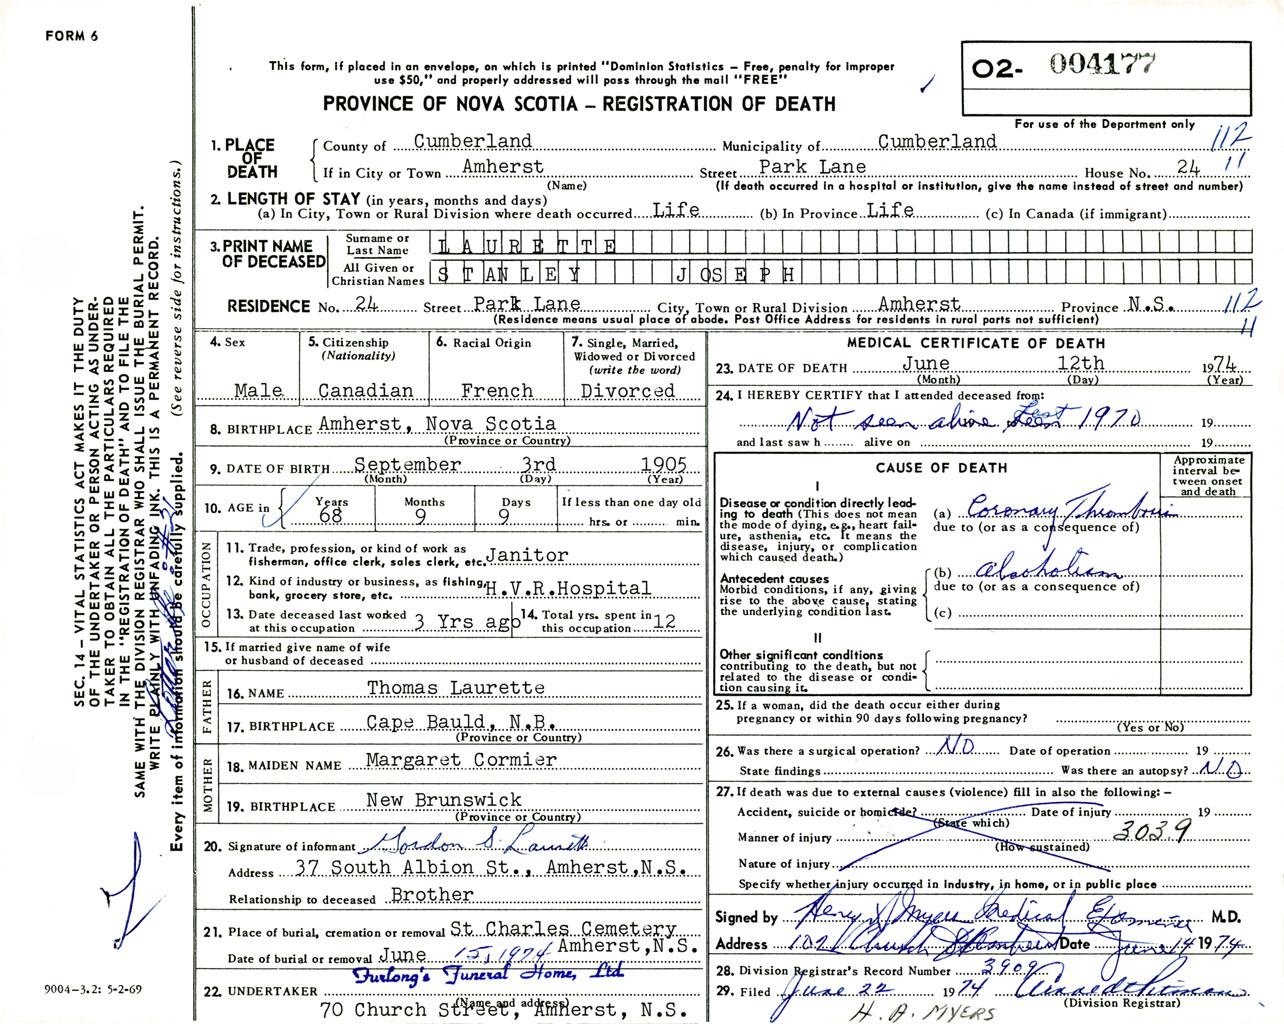 FORM 6
This form, if placed in an envelope, on which is printed "Dominion Statistics – Free, penalty for improper
use $50," and properly addressed will pass through the mail "FREE"
PROVINCE OF NOVA SCOTIA – REGISTRATION OF DEATH
O2- 004177
For use of the Department only
112
11
1. PLACE OF DEATH
County of Cumberland Municipality of Cumberland
If in City or Town Amherst Street Park Lane House No. 24
(Name) (If death occurred in a hospital or institution, give the name instead of street and number)
2. LENGTH OF STAY (in years, months and days)
(a) In City, Town or Rural Division where death occurred Life (b) In Province Life (c) In Canada (if immigrant)
3. PRINT NAME OF DECEASED
Surname or Last Name LAURETTE
All Given or Christian Names STANLEY JOSEPH
RESIDENCE No. 24 Street Park Lane City, Town or Rural Division Amherst Province N.S. 112
(Residence means usual place of abode. Post Office Address for residents in rural parts not sufficient) 11
4. Sex Male
5. Citizenship (Nationality) Canadian
6. Racial Origin French
7. Single, Married, Widowed or Divorced (write the word) Divorced
8. BIRTHPLACE Amherst, Nova Scotia
(Province or Country)
9. DATE OF BIRTH September 3rd 1905
(Month) (Day) (Year)
10. AGE in Years 68 Months 9 Days 9 If less than one day old hrs. or min.
OCCUPATION
11. Trade, profession, or kind of work as fisherman, office clerk, sales clerk, etc. Janitor
12. Kind of industry or business, as fishing, bank, grocery store, etc. H.V.R.Hospital
13. Date deceased last worked at this occupation 3 Yrs ago
14. Total yrs. spent in this occupation 12
15. If married give name of wife or husband of deceased
FATHER
16. NAME Thomas Laurette
17. BIRTHPLACE Cape Bauld, N.B.
(Province or Country)
MOTHER
18. MAIDEN NAME Margaret Cormier
19. BIRTHPLACE New Brunswick
(Province or Country)
20. Signature of informant Gordon S Laurette
Address 37 South Albion St., Amherst,N.S.
Relationship to deceased Brother
21. Place of burial, cremation or removal St Charles Cemetery
Amherst,N.S.
Date of burial or removal June 15, 1974
Furlong's Funeral Home, Ltd.
22. UNDERTAKER
(Name and address)
70 Church Street, Amherst, N.S.
MEDICAL CERTIFICATE OF DEATH
23. DATE OF DEATH June 12th 1974
(Month) (Day) (Year)
24. I HEREBY CERTIFY that I attended deceased from:
Not seen alive Last 1970 19
and last saw h alive on 19
CAUSE OF DEATH
Approximate interval between onset and death
I
Disease or condition directly leading to death (This does not mean the mode of dying, e.g., heart failure, asthenia, etc. It means the disease, injury, or complication which caused death.)
(a) Coronary Thrombosis
due to (or as a consequence of)
Antecedent causes
Morbid conditions, if any, giving rise to the above cause, stating the underlying condition last.
(b) Alcoholism
due to (or as a consequence of)
(c)
II
Other significant conditions
contributing to the death, but not related to the disease or condition causing it.
25. If a woman, did the death occur either during
pregnancy or within 90 days following pregnancy?
(Yes or No)
26. Was there a surgical operation? NO Date of operation 19
State findings Was there an autopsy? NO
27. If death was due to external causes (violence) fill in also the following: –
Accident, suicide or homicide? Date of injury 19
(State which)
Manner of injury 3039
(How sustained)
Nature of injury
Specify whether injury occurred in Industry, in home, or in public place
Signed by Henry A Myers Medical Examiner M.D.
Address 102 Church St Amherst Date June 14 1974
28. Division Registrar's Record Number 3909
29. Filed June 22 1974
(Division Registrar)
H. A. MYERS
SEC. 14 – VITAL STATISTICS ACT MAKES IT THE DUTY
OF THE UNDERTAKER OR PERSON ACTING AS UNDER-
TAKER TO OBTAIN ALL THE PARTICULARS REQUIRED
IN THE "REGISTRATION OF DEATH" AND TO FILE THE
SAME WITH THE DIVISION REGISTRAR WHO SHALL ISSUE THE BURIAL PERMIT.
WRITE PLAINLY WITH UNFADING INK. THIS IS A PERMANENT RECORD.
Every item of information should be carefully supplied. (See reverse side for instructions.)
9004–3.2: 5-2-69